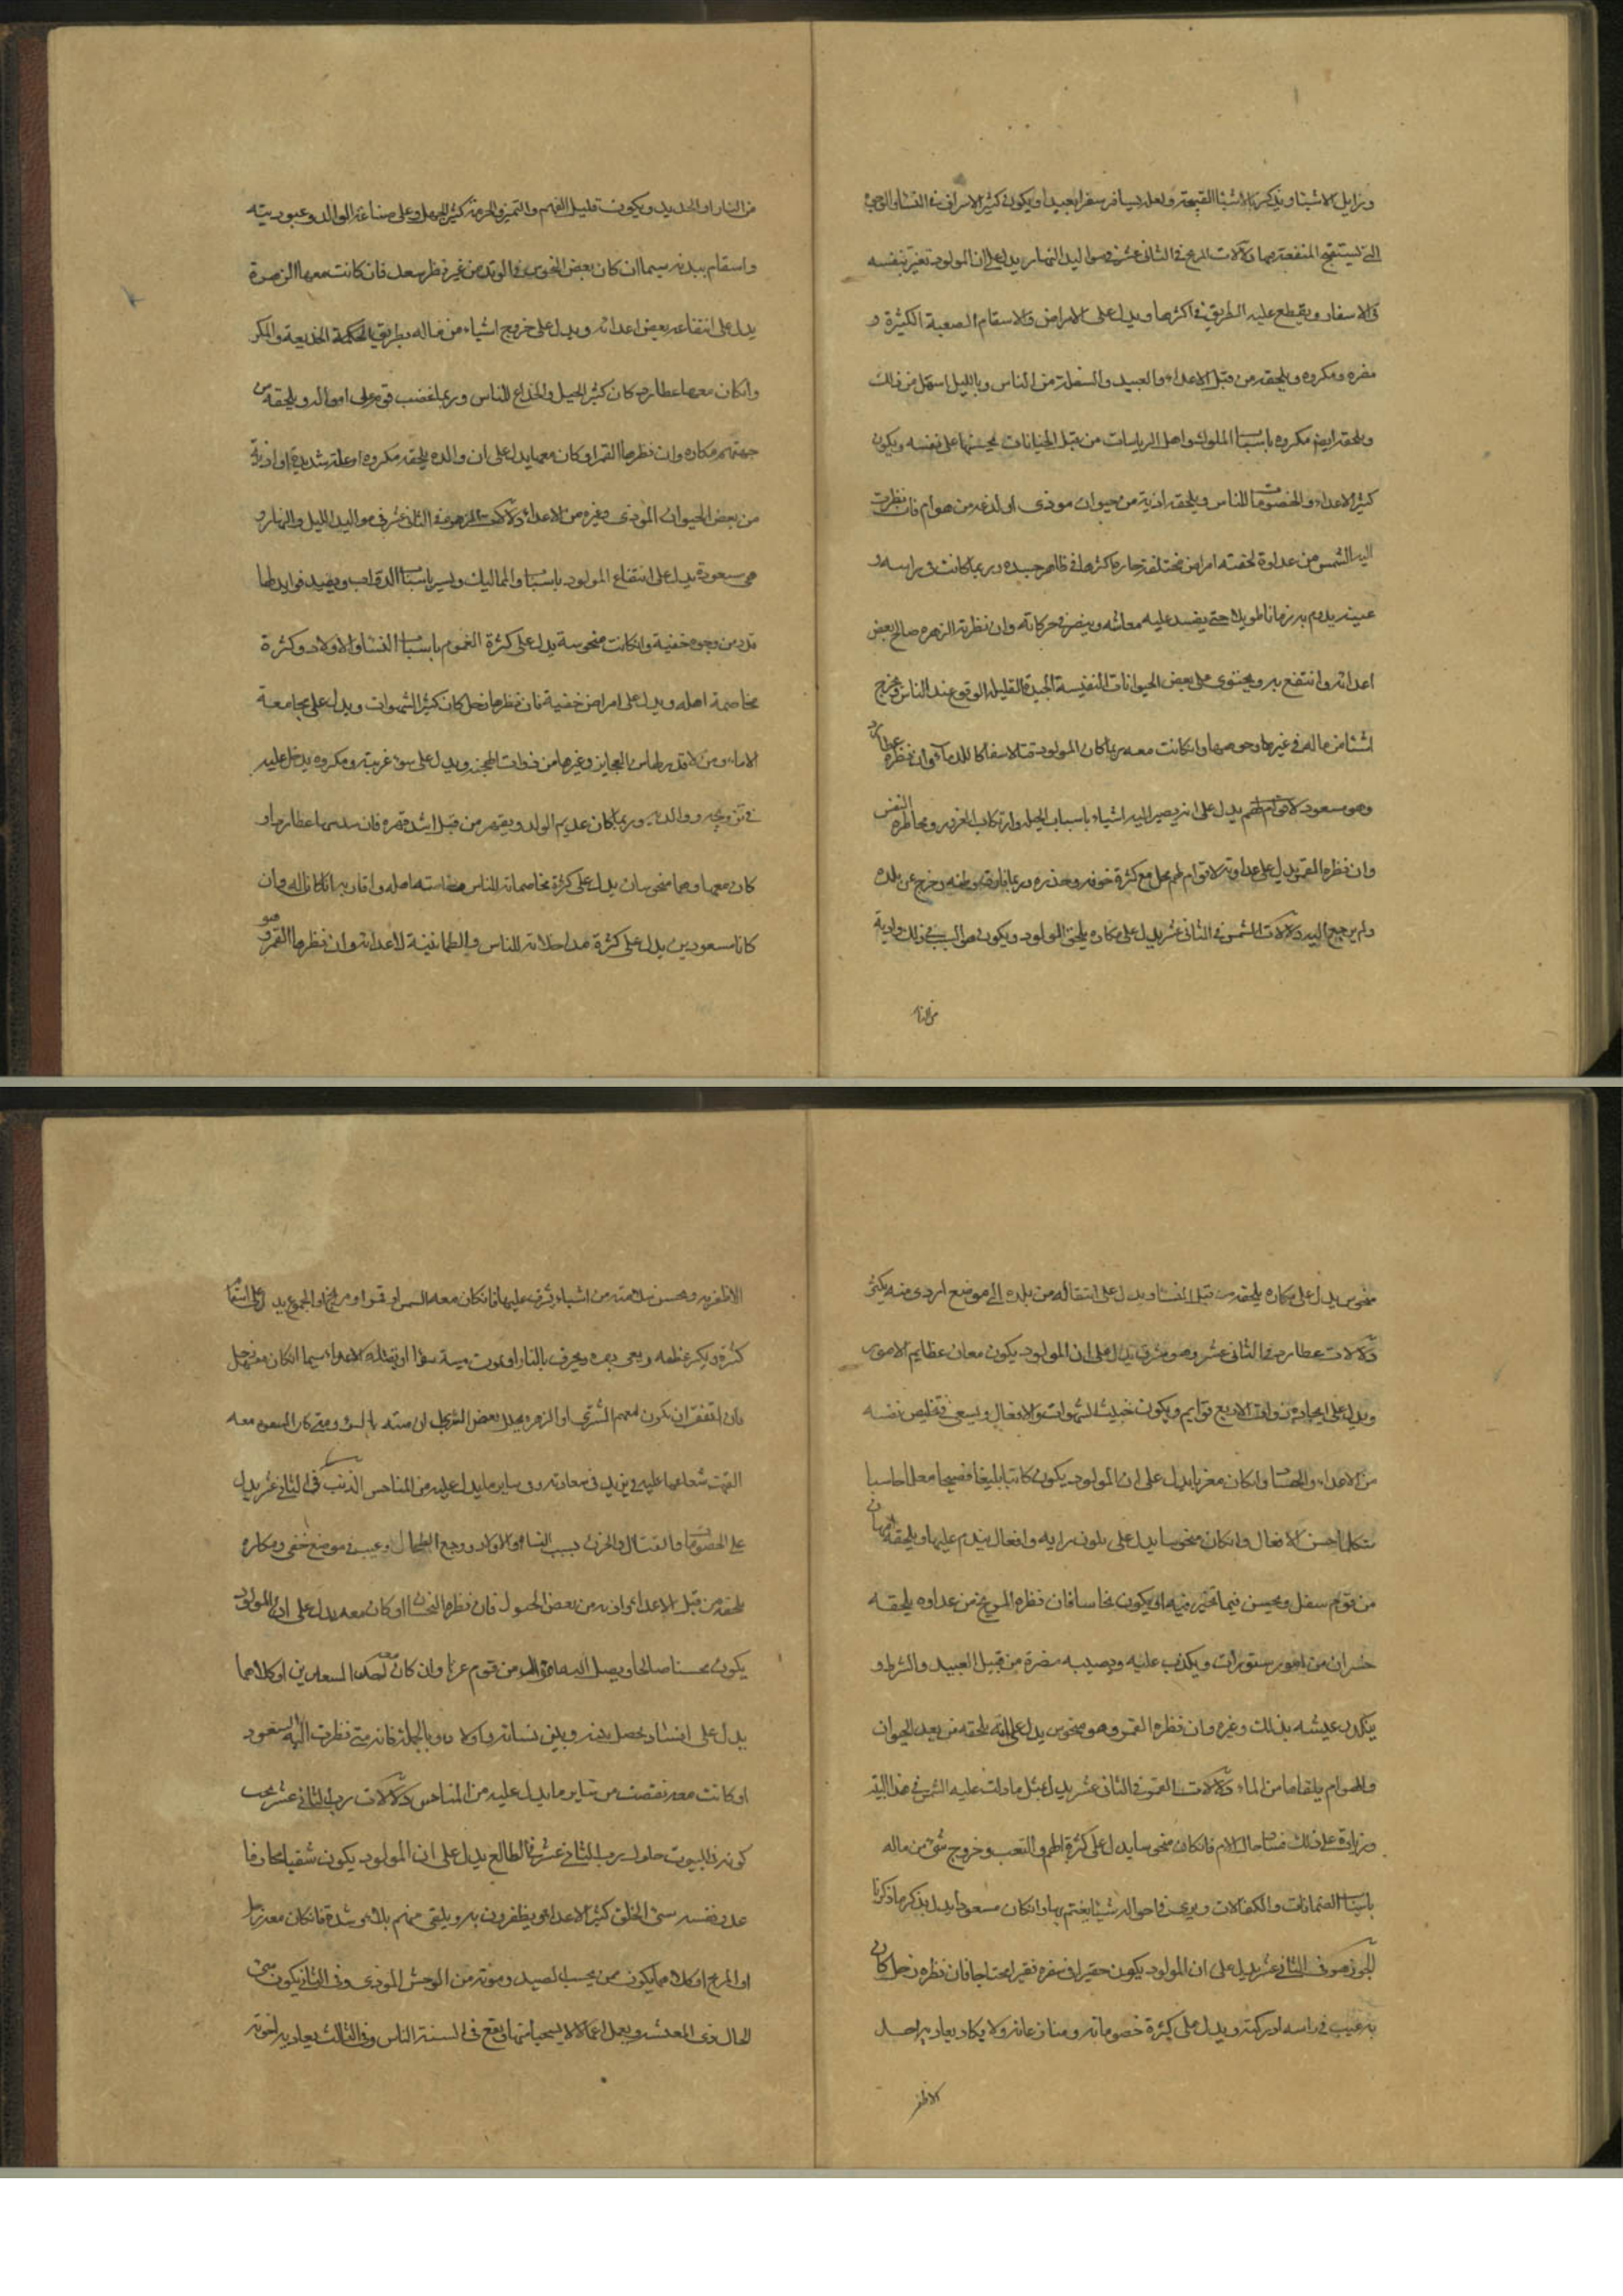 ورذايل الاشيا ويذكر بالاشيا القبيحة ولعله يسافر سفرا بعيدا ويكون كثير الاسراف في النسا والوجوه
التي تستقبح المنفعة بها دلالات المريخ في الثاني عشر في مواليد النهار يدل على ان المولود بنفسه
في الاسفار ويقطع عليه الطريق في اكثرها ويدل على الامراض والاسقام الصعبة الكثيرة و
مضره ومكروه ويلحقه من قبل الاعداء والعبيد والسفلة من الناس وبالليل اسهل من ذلك
ويلحقه ايضا مكروه باسباب الملوك واهل الرياسات من قبل الجنايات يجنيها على نفسه ويكون
كثير الاعداء والخصومات للناس ويلحقه اذية من حيوان موذي او لدغه من هوام فان نظرت
اليه الشمس من عداوة لحقته امراض مختلفة حارة اكثرها في ظاهر جسده وربما كانت في راسه او
عينه يدوم به زمانا طويلا حتى يفسد عليه معاشه حركاته وان نظرته الزهره صالح بعض
اعدائه وانتفع به ويحتوي على بعض الحيوانات النفيسة الجيدة القليلة الوقوع عند الناس ويخرج
اشيا من ماله في غيرها وان كانت معه ربما كان المولود قتالا سفاكا للدماء وان نظره عطارد
وهو مسعود يدل على انه يصير اليه اشياء باسباب الحيل وارتكاب الغرور ومخاطره النفس
وان نظره القمر يدل على عداوته لاقوام مع كثرة خوفه وحذره وربما فارق وطنه وخرج عن بلده
ولم يرجع اليه دلالات الشمس في الثاني عشر يدل على مكاره يلحق المولود ويكون هو السبب في ذلك واذية
من النار
من النار او الحديد ويكون قليل الفهم والتمييز والحرمة كثير الجهل وعلى مناعة الوالد وعبوديته
واسقام ببدنه سيما ان كان بعض النحوس في الوتد من غير نظر سعد فان كانت معها الزهرة
يدل على انتفاعه ببعض اعدائه ويدل على خروج اشياء من ماله بطريق الحكمة الخديعة والمكر
وان كان معها عطارد كان كثير الحيل والخداع للناس وربما غضب قوم على امواله ويلحقه من
جهتهم مكاره وان نظرها القمر او كان معها يدل على ان والده يلحقه مكروه او علة شديدة او اذية
من بعض الحيوان الموذي وغيره من الاعداء دلالات الزهرة في الثاني عشر في مواليد الليل والنهار و
هي مسعودة يدل على انتفاع المولود باسباب والمماليك ويسير باسباب الدواب ويفيد فوايد لها
قدر من وجوه خفية وان كانت منحوسة يدل على كثرة الغموم باسباب النسا والاولاد وكثرة
مخاصمة اهله ويدل على امراض خفية فان نظرها زحل كان كثير الشهوات ويدل على مجامعة
الاماء ومن لا قدر لها من العجايز وغيرها من ذوات الهجنه ويدل على سوء ومكروه يدخل عليه
في تزويجه ووالده وربما كان عديم الولد من قبل اشد قهره فان عطارد او
كان معها وهما منحوسان يدل على كثرة مخاصماته للناس اهله واقاربه وان
كانا مسعودين يدل على كثرة مداخلاته للناس والطمانينة لاعدائه وان نظرها القمر وهو
منحوس يدل على مكاره يلحقه من قبل النسا ويدل على انتقاله من بلده الى موضع اردى منه يكثر
دلالات عطارد في الثاني عشر وهو مشرق يدل على ان المولود يكون معان عظايم الامور
ويدل على ذوات الاربع قوايم ويكون خبيث الشهوات والافعال ويسعى في تخليص نفسه
من الاعداء والحساد وان كان مغربا يدل على ان المولود يكون كاتبا بليغا فصيحا معلما حاسبا
متكلما حسن الافعال وان كان منحوسا يدل على تلون رايه وافعال يندم عليها ويلحقه
من قوم سفل ويحبس فيما او يكون نخاسا فان نظره المريخ من عداوه يلحقه
خسران من امور مستورات ويكذب عليه ويصيبه مضرة من قبل العبيد والشرط و
يتكدر عيشه بذلك وغيره وان نظره القمر وهو منحوس يدل على انه يلحقه من بعض الحيوان
والهوام يلقاها من الماء دلالات القمر في الثاني عشر يدل بمثل ما دلت عليه الشمس في هذا البيت
وزيادة على ذلك فساد حال الام فان كان منحوسا يدل على كثرة الهم والتعب وخروج شيء من ماله
باسباب الضمانات والكفالات ويرى في احواله شيئا يغتم بها وان كان مسعودا يدل بذكر ما ذكرنا
الجوزهر في الثاني عشر يدل على ان المولود يكون حقيرا في سفره فقيرا محتاجا فان نظره زحل كان
به عيب في راسه او ركبته ويدل على كثرة خصوماته ومنازعاته ولا يكاد يعاديه احد
الا ظفر
الا ظفر به ويحسن سلامته من اشياء يشرف عليها فان كان معه الشمس او قمر او مريخ او الجميع يدل على اسقام
كثيرة ويكسر عظمه ويعمى بصره ويحرق بالنار او يموت ميتة سوء او يقتله الاعداء سيما ان كان معهم زحل
فان اتفق ان يكون معهم المشتري او الزهره يحلل بعض الشر ومتى كان السعود معه
القت شعاعها عليه يزيد في سعادته وفي ساير ما يدل عليه من المناحس الذنب في الثاني عشر يدل
على الخصومات والقتال والحزن بسبب النسا والاولاد ووجع الطحال وعيب في موضع خفي ومكاره
يلحقه من قبل الاعداء واذية من بعض الحصول فان نظره النحسان او كان معه يدل على ان المولود
يكون محسنا صالحا ويصل اليه من قوم غربا وان كان معه احد السعدين او كلاهما
يدل على افساد يحصل بدنه وبين نسائه واولاده وبالجملة فانه متى نظرت اليه السعود
او كانت معه نقصت من ساير ما يدل عليه من المناحس دلالات رب الثاني عشر بحسب
كونه في البيوت حلول رب الثاني عشر في الطالع يدل على ان المولود يكون شقيا محارفا
عدو نفسه سيئ الخلق كثير الاعداء ويظفرون به ويلقى منهم بلاء وشدة فان كان معه زحل
او المريخ او كلاهما يكون ممن يحب الصيد وموته من الوحش الموذي وفي الثاني يكون سيئ
الحال ردي المعيشة ويعمل اعمالا لا يستحيا منها ويقع في السنة الناس وفي الثالث يعاديه اخوته